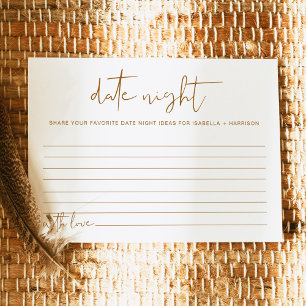 date night
SHARE YOUR FAVORITE DATE NIGHT IDEAS FOR ISABELLA + HARRISON
with love